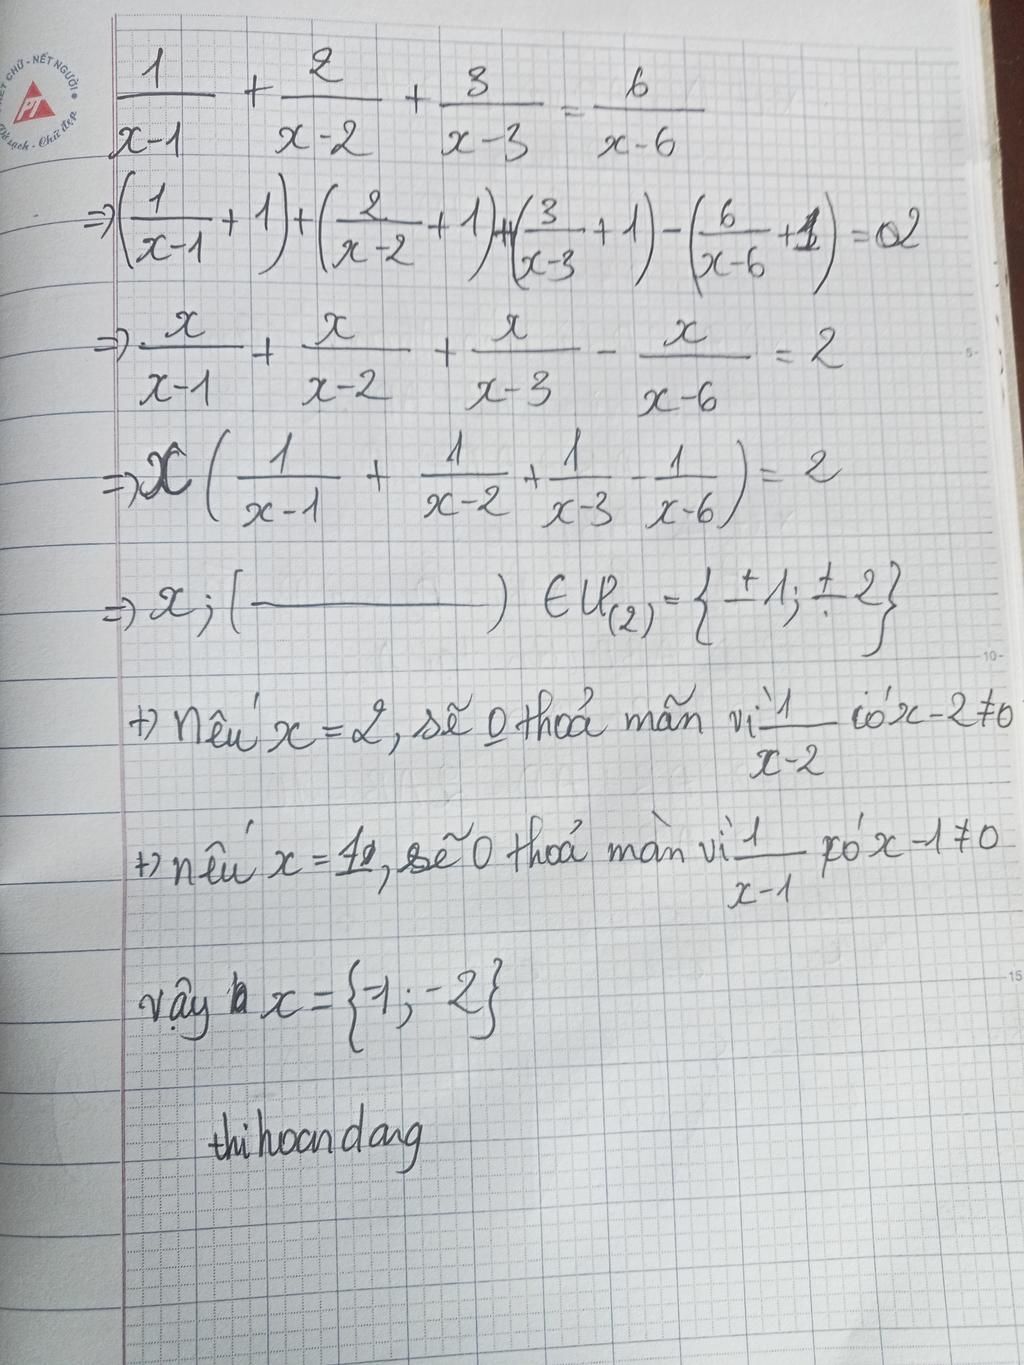 NÉT CHỮ - NẾT NGƯỜI
PT
Vở sạch - Chữ đẹp
1/(x-1) + 2/(x-2) + 3/(x-3) = 6/(x-6)
=> (1/(x-1) + 1) + (2/(x-2) + 1) + (3/(x-3) + 1) - (6/(x-6) + 1) = 2
=> x/(x-1) + x/(x-2) + x/(x-3) - x/(x-6) = 2
=> x (1/(x-1) + 1/(x-2) + 1/(x-3) - 1/(x-6)) = 2
5-
=> x; (———) ∈ Ư(2) = {±1; ±2}
10-
+> nếu x = 2, sẽ 0 thoả mãn vì 1/(x-2) có x-2≠0
+> nếu x = 1, sẽ 0 thoả màn vì 1/(x-1) có x-1≠0
vậy x = {-1; -2}
15
thihoandang